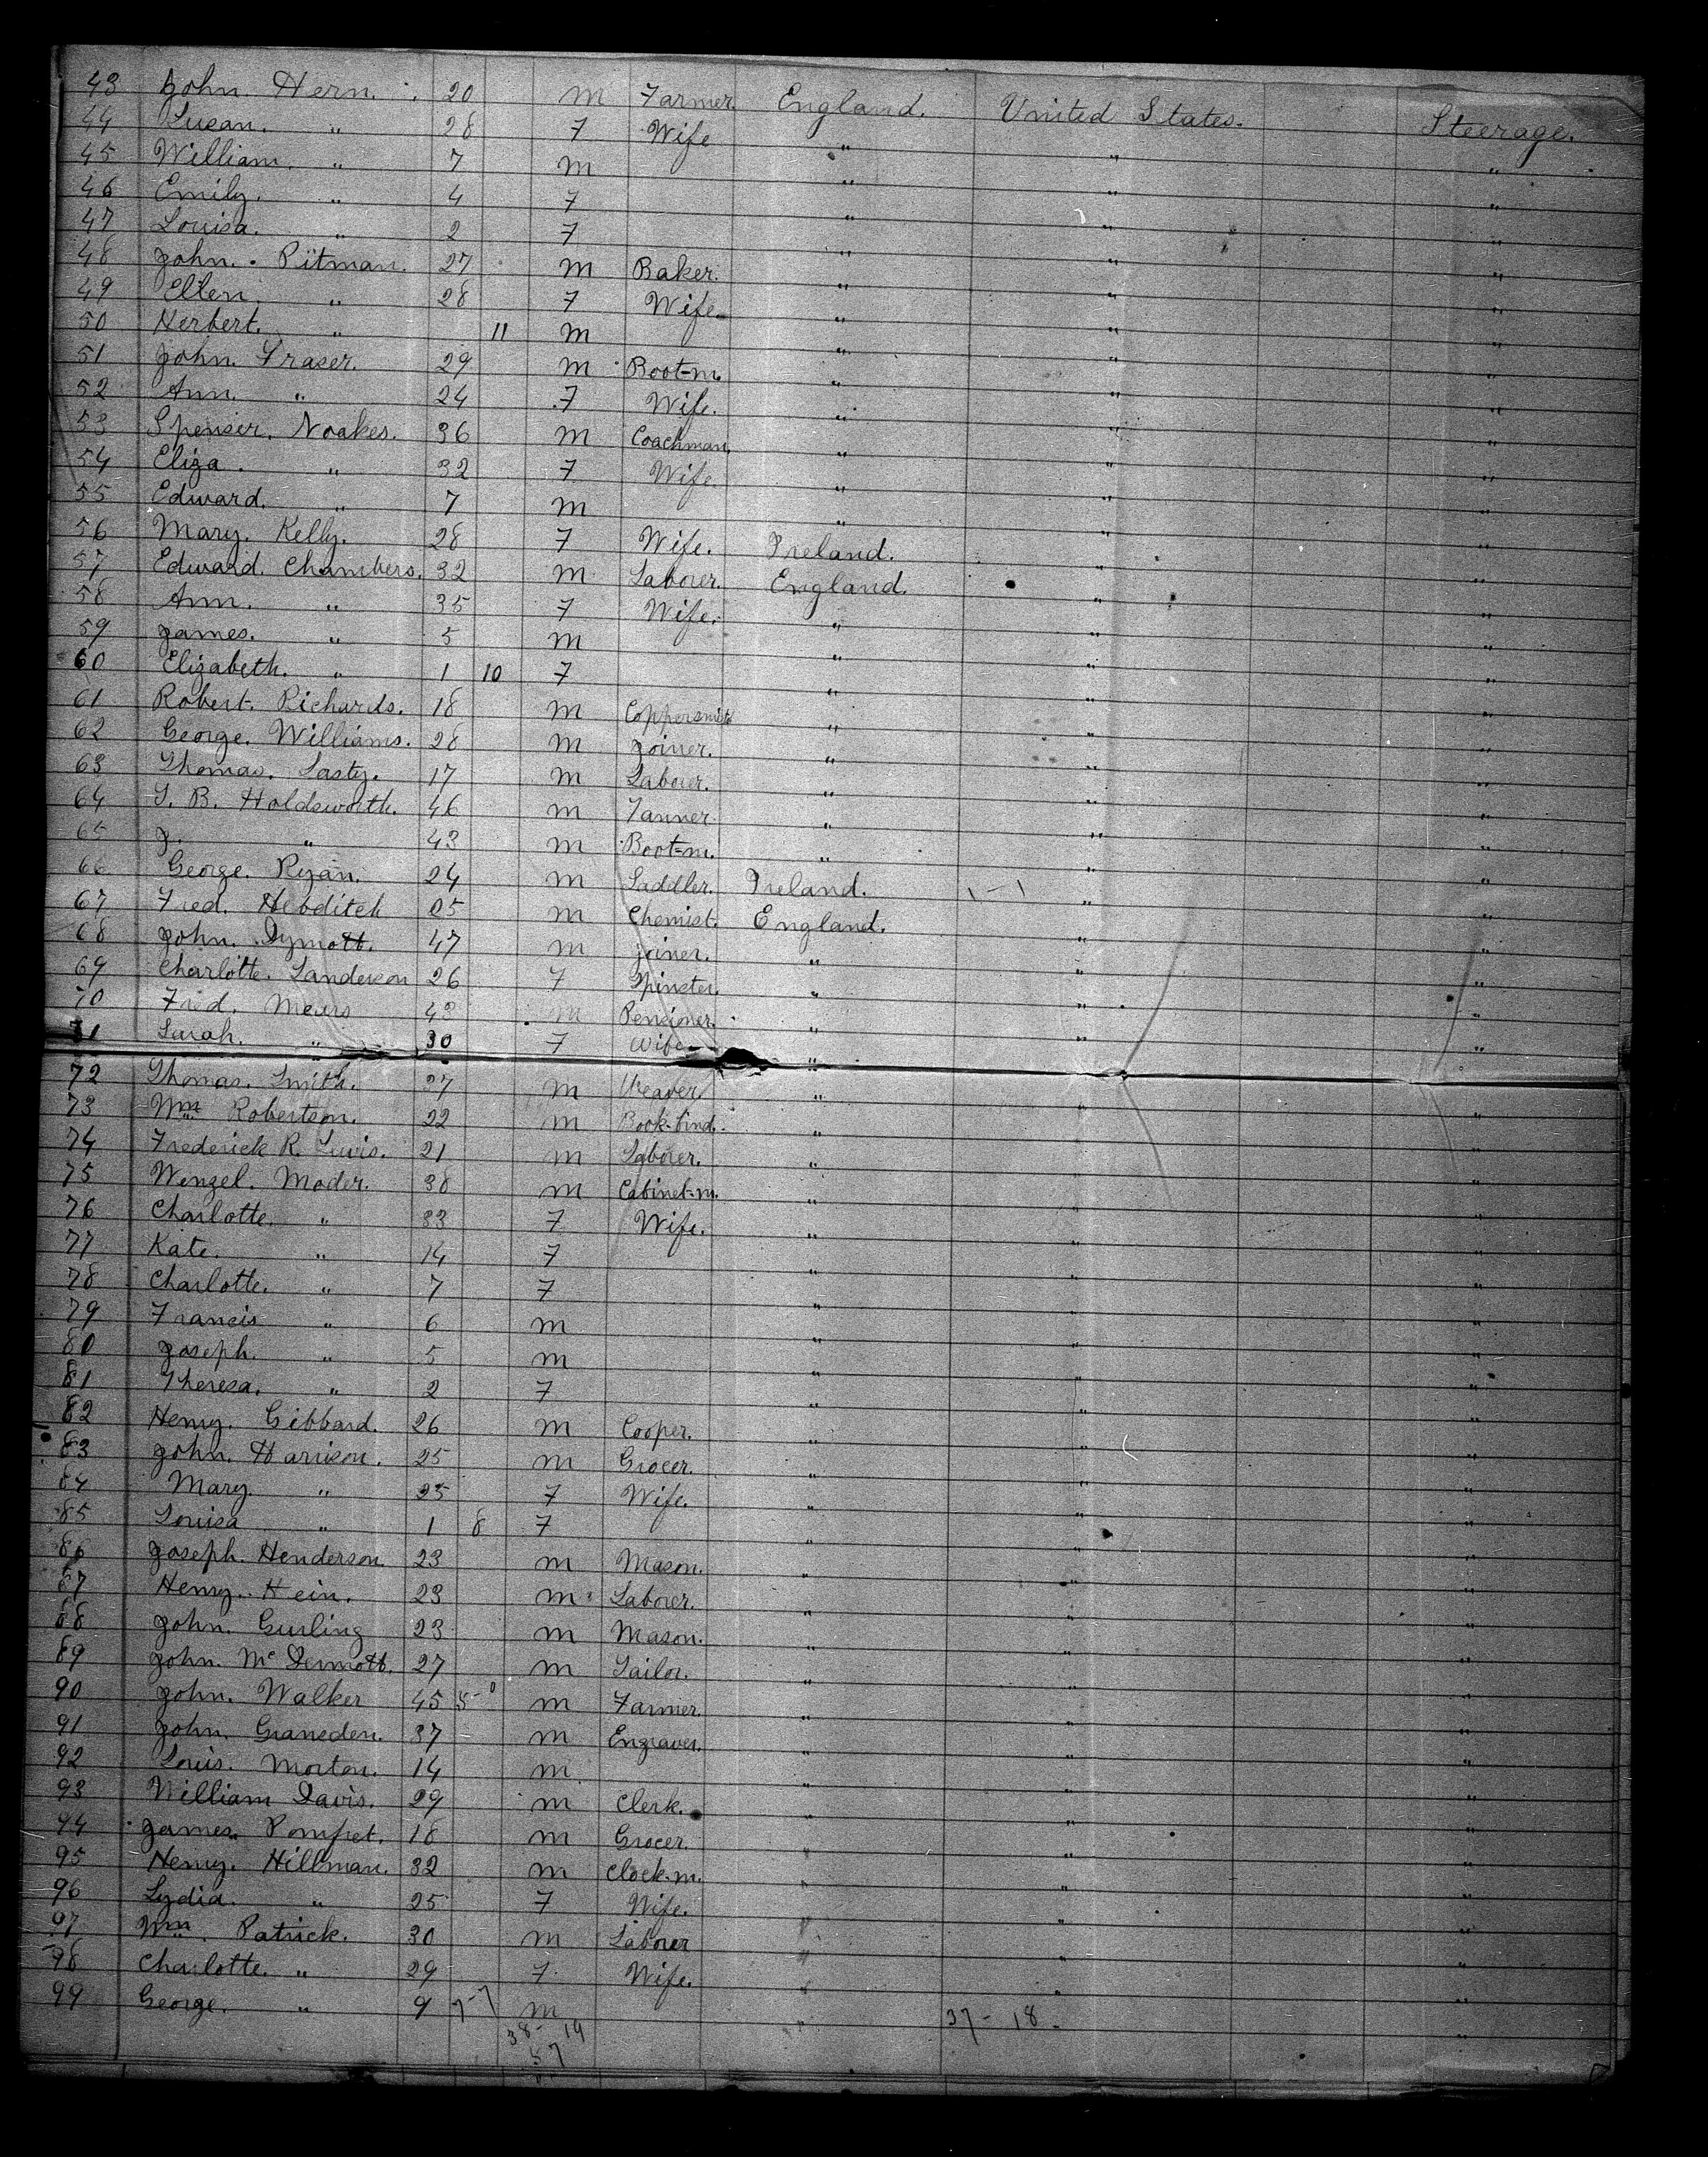 43 John Hern. 20 m Farmer England. United States. Steerage.
44 Susan. " 28 F Wife " " "
45 William. " 7 m " " "
46 Emily. " 4 F " " "
47 Louisa. " 2 F " " "
48 John. Pitman. 27 m Baker. " " "
49 Ellen. " 28 F Wife. " " "
50 Herbert. " 11 m " " "
51 John. Fraser. 29 m Boot-m. " " "
52 Ann. " 24 F Wife. " " "
53 Spenser. Noakes. 36 m Coachman. " " "
54 Eliza. " 32 F Wife. " " "
55 Edward. " 7 m " " "
56 Mary. Kelly. 28 F Wife. Ireland. " "
57 Edward. Chambers. 32 m Labourer. England. " "
58 Ann. " 35 F Wife. " " "
59 James. " 5 m " " "
60 Elizabeth. " 1 10 F " " "
61 Robert. Richards. 18 m Coppersmith " " "
62 George. Williams. 28 m Joiner. " " "
63 Thomas. Lasty. 17 m Labourer. " " "
64 T. B. Holdsworth. 46 m Tanner. " " "
65 J. " 43 m Boot-m. " " "
66 George. Ryan. 24 m Saddler. Ireland. 1-1 " "
67 Fred. Hebditch 25 m Chemist. England. " "
68 John. Dymott. 47 m Joiner. " " "
69 Charlotte. Sanderson 26 F Spinster. " " "
70 Fred. Mears 43 m Pensioner. " " "
71 Sarah. " 30 F Wife " " "
72 Thomas. Smith. 37 m Weaver " " "
73 Wm Robertson. 22 m Book-bind. " " "
74 Frederick R. Lewis. 21 m Labourer. " " "
75 Wenzel. Moder. 38 m Cabinet-m. " " "
76 Charlotte. " 33 F Wife. " " "
77 Kate. " 14 F " " "
78 Charlotte. " 7 F " " "
79 Francis " 6 m " " "
80 Joseph. " 5 m " " "
81 Theresa. " 2 F " " "
82 Henry. Gibbard. 26 m Cooper. " " "
83 John. Harrison. 25 m Grocer. " " "
84 Mary. " 25 F Wife. " " "
85 Louisa " 1 8 F " " "
86 Joseph. Henderson. 23 m Mason. " " "
87 Henry. Hein. 23 m Labourer. " " "
88 John. Gurling 23 m Mason. " " "
89 John. Mc Dermott. 27 m Tailor. " " "
90 John. Walker 45 m Farmer. " " "
91 John. Gransden. 37 m Engraver. " " "
92 Louis. Morton. 14 m " " "
93 William Davis. 29 m Clerk. " " "
94 James. Pomfret. 18 m Grocer. " " "
95 Henry. Hillman. 32 m Clock-m. " " "
96 Lydia. " 25 F Wife. " " "
97 Wm. Patrick. 30 m Labourer " " "
98 Charlotte. " 29 F Wife. " " "
99 George. " 9 7-7 m " 37-18- "
38-19
57